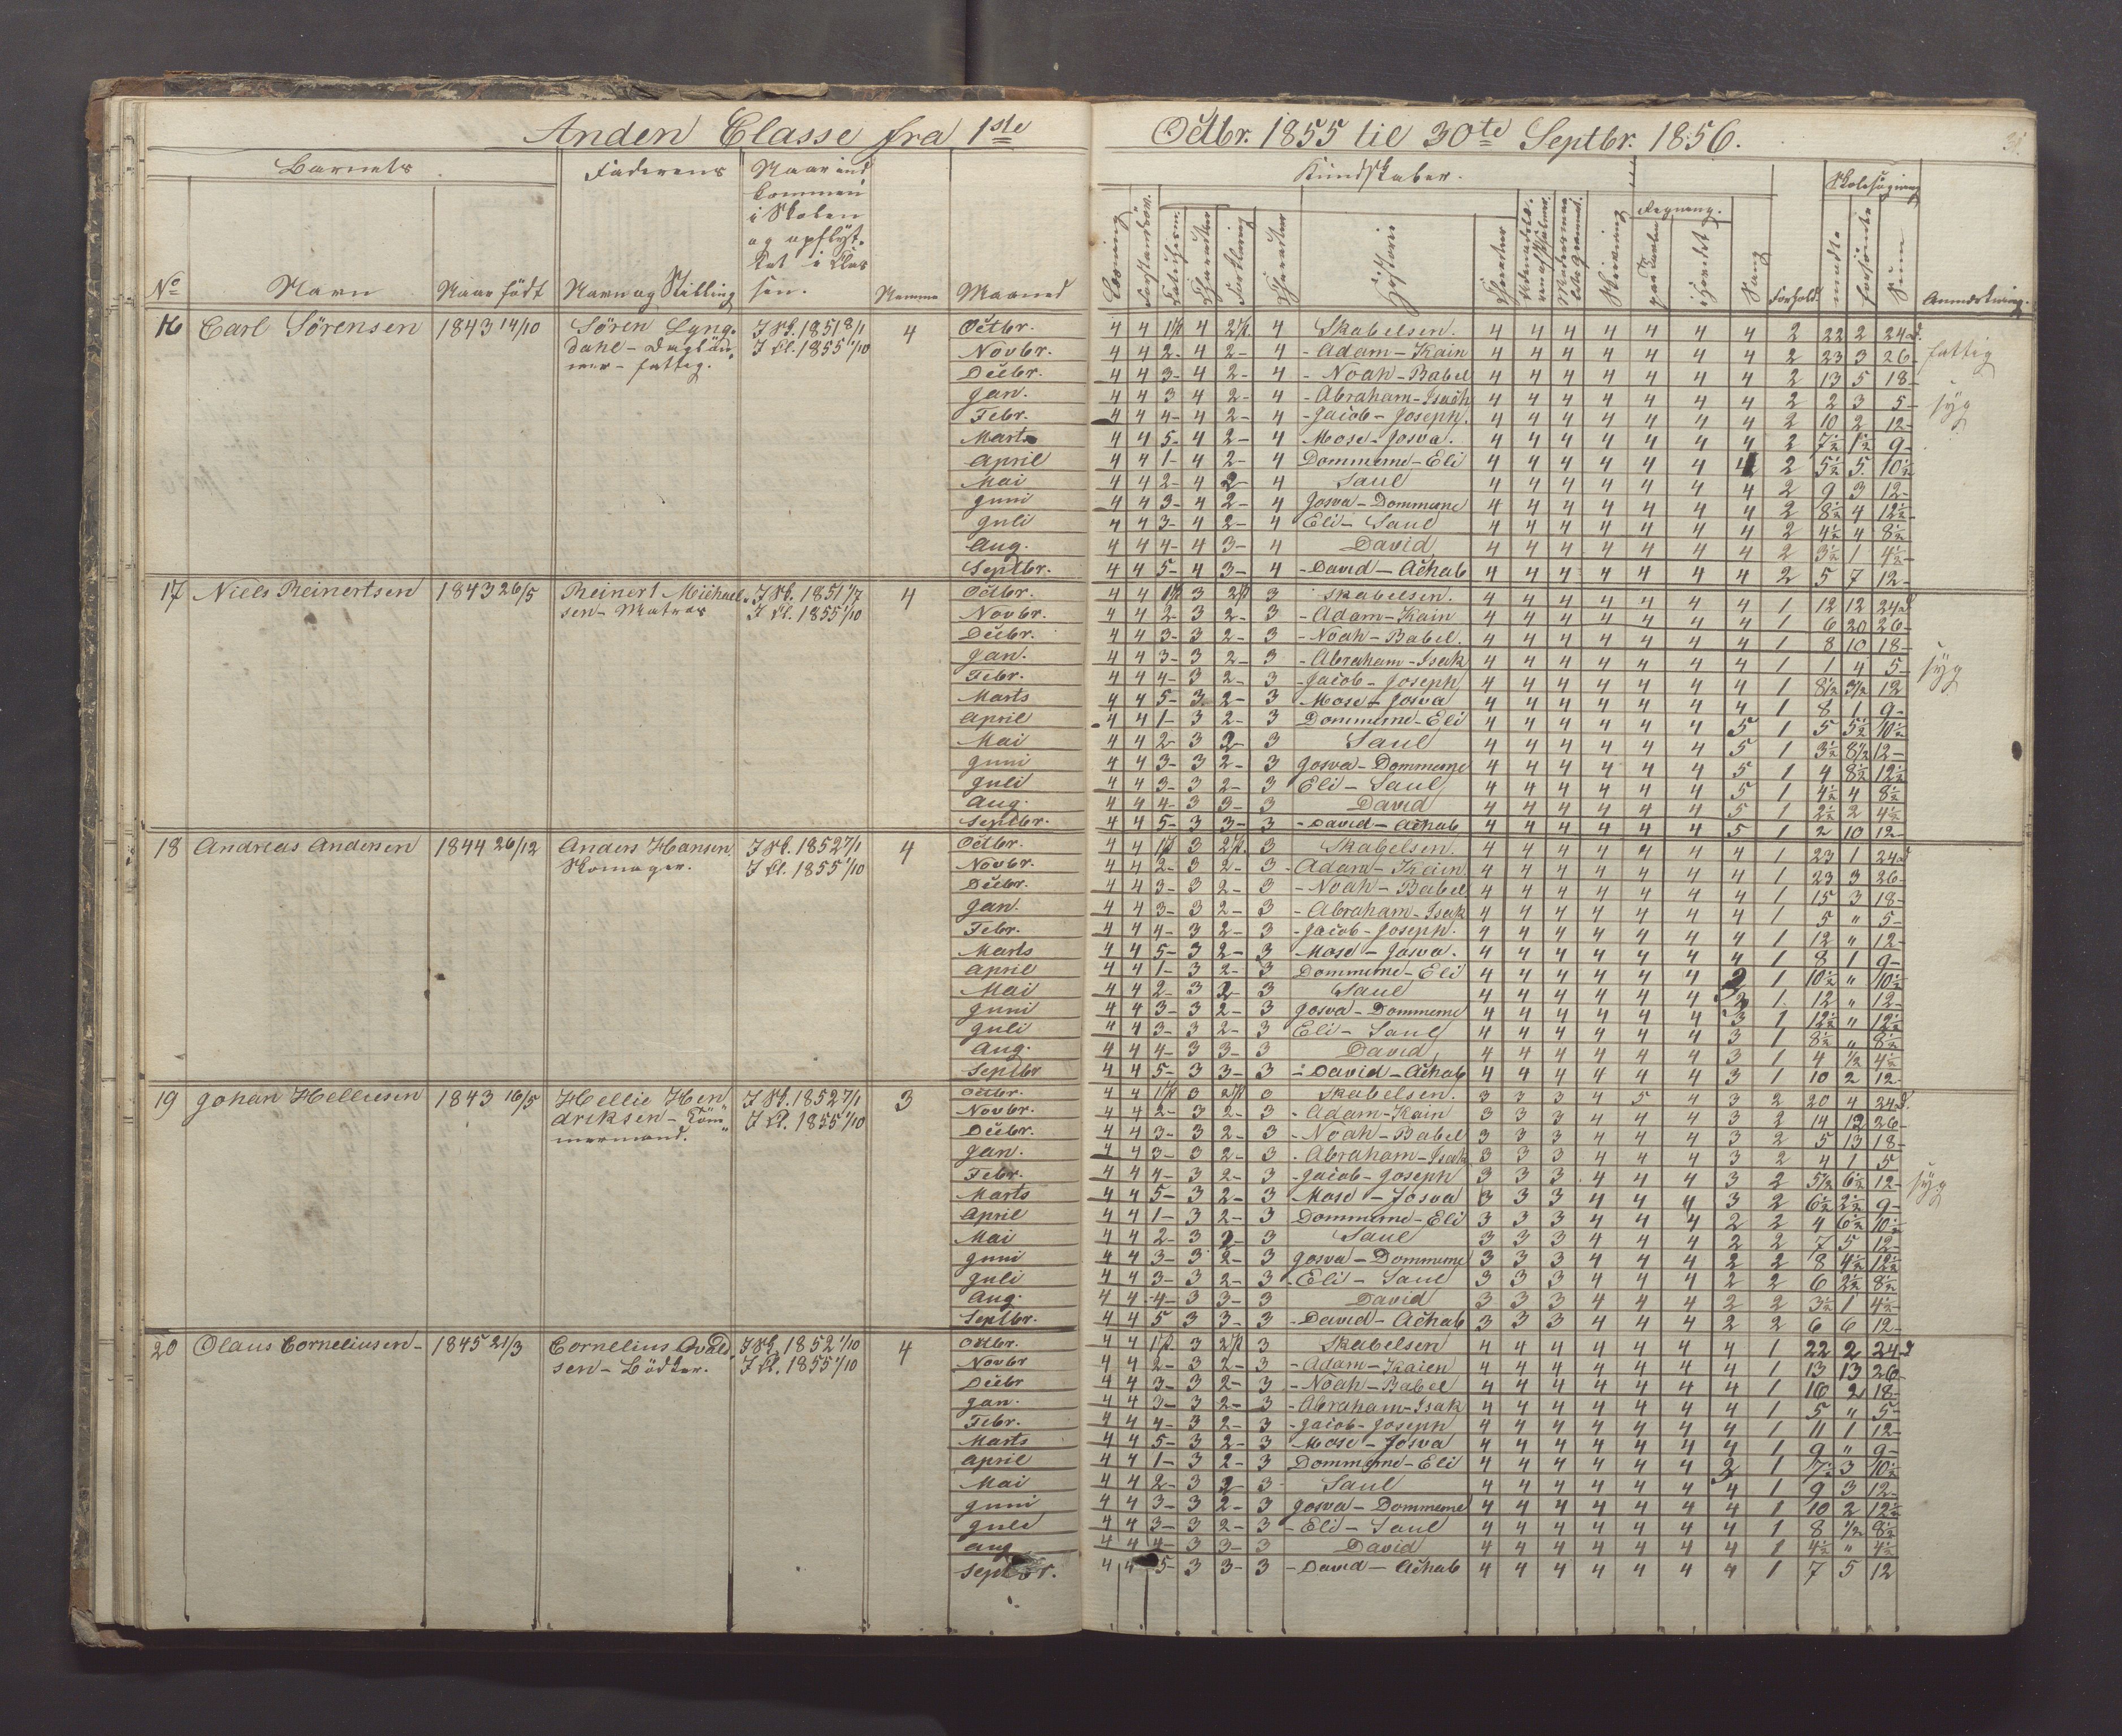 Anden Classe fra 1ste Octbr. 1855 til 30te Septbr. 1856.
Barnets Faderens Naar ind Kundskaber. Skolesøgning
kommen
i Skolen Regning.
og opflyt.
tet i Clas
No Navn Naar født Navn og Stilling sen. Maaned Historie Sang Forhold mødte forsømte Sum Anmærkning.
16 Carl Sörensen 1843 14/10 Sören Lyng- I Sk. 1851 8/1 4 Octbr. 4 4 1ste P. 4 2 P. 4 Skabelsen. 4 4 4 4 4 4 4 2 22 2 24 d.
dahl - Daglön- I Cl. 1855 1/10 Novbr. 4 4 2- 4 2- 4 - Adam - Kain 4 4 4 4 4 4 4 2 23 3 26- fattig
ner - fattig. Decbr. 4 4 3- 4 2- 4 - Noah - Babel 4 4 4 4 4 4 4 2 13 5 18-
Jan. 4 4 3 4 2- 4 - Abraham - Isach 4 4 4 4 4 4 4 2 2 3 5- syg
Febr. 4 4 4- 4 2- 4 - Jacob - Joseph. 4 4 4 4 4 4 4 2 10 2 12-
Marts 4 4 5- 4 2- 4 Mose - Josva. 4 4 4 4 4 4 4 2 7½ 1½ 9-
April 4 4 1- 4 2- 4 Dommerne - Eli 4 4 4 4 4 4 4 2 5½ 5. 10½
Mai 4 4 2- 4 2 4 Saul 4 4 4 4 4 4 4 2 9 3 12-
Juni 4 4 3- 4 2- 4 Josva - Dommerne 4 4 4 4 4 4 4 2 8½ 4 12½
Juli 4 4 3- 4 2- 4 Eli - Saul 4 4 4 4 4 4 4 2 4½ 4 8½
Aug. 4 4 4- 4 3- 4 David 4 4 4 4 4 4 4 2 3½ 1 4½-
Septbr. 4 4 5- 4 3- 4 - David - Achab 4 4 4 4 4 4 4 2 5 7 12-
17 Niels Reinertsen 1843 26/5 Reinert Michael- I Sk. 1851 1/7 4 Octbr. 4 4 1 P 3 2 P 3 Skabelsen. 4 4 4 4 4 4 4 1 12 12 24 d
sen - Matros I Cl. 1855 1/10 Novbr. 4 4 2 3 2- 3 - Adam - Kain 4 4 4 4 4 4 4 1 6 20 26-
Decbr. 4 4 3- 3 2- 3 - Noah - Babel. 4 4 4 4 4 4 4 1 8 10 18-
Jan. 4 4 3- 3 2- 3 - Abraham - Isak 4 4 4 4 4 4 4 1 1 4 5- syg
Febr. 4 4 4- 3 2- 3 - Jacob - Joseph 4 4 4 4 4 4 4 1 8½ 3½ 12
Marts 4 4 5- 3 2- 3 Mose - Josva 4 4 4 4 4 4 4 1 8 1 9-
April 4 4 1- 3 2- 3 Dommerne - Eli 4 4 4 4 4 4 5 1 5 5½ 10½
Mai 4 4 2- 3 2- 3 Saul 4 4 4 4 4 4 5 1 3½ 8½ 12-
Juni 4 4 3- 3 2- 3 Josva - Dommerne 4 4 4 4 4 4 5 1 4 8½ 12½
Juli 4 4 3- 3 2- 3 Eli - Saul 4 4 4 4 4 4 5 1 4½ 4 8½
Aug. 4 4 4- 3 3- 3 David 4 4 4 4 4 4 5 1 2½ 2 4½
Septbr. 4 4 5- 3 3- 3 - David - Achab 4 4 4 4 4 4 5 1 2 10 12-
18 Andreas Andersen 1844 26/12 Anders Hansen I Sk. 1852 7/1 4 Octbr. 4 4 1 P 3 2 P. 3 Skabelsen. 4 4 4 4 4 4 4 1 23 1 24 d
Skomager. I Cl. 1855 1/10 Novbr. 4 4 2- 3 2- 3 - Adam - Kain 4 4 4 4 4 4 4 1 23 3 26-
Decbr. 4 4 3- 3 2- 3 - Noah - Babel 4 4 4 4 4 4 4 1 15 3 18-
Jan. 4 4 3- 3 2- 3 - Abraham - Isak 4 4 4 4 4 4 4 1 5 " 5-
Febr. 4 4 4- 3 2- 3 - Jacob - Joseph. 4 4 4 4 4 4 4 1 12 " 12-
Marts 4 4 5- 3 2- 3 Mose - Josva. 4 4 4 4 4 4 4 1 8 1 9-
April 4 4 1- 3 2- 3 Dommerne - Eli 4 4 4 4 4 4 3 1 10½ " 10½
Mai 4 4 2- 3 2 3 Saul 4 4 4 4 4 4 3 1. 12 " 12-
Juni 4 4 3- 3 2- 3 Josva - Dommerne 4 4 4 4 4 4 3 1 12½ " 12½
Juli 4 4 3- 3 2- 3 Eli - Saul 4 4 4 4 4 4 3 1 8½ " 8½
Aug. 4 4 4- 3 3- 3 David 4 4 4 4 4 4 3 1 4 ½ 4½
Septbr 4 4 5- 3 3- 3 - David - Achab 4 4 4 4 4 4 3 1 10 2 12
19 Johan Helliesen 1843 16/5 Hellie Hen I Sk. 1852 7/1 3 Octbr. 4 4 1 P 3 2 P 3 Skabelsen. 3 3 3 4 5 4 3 2 20 4 24 d.
driksen - Töm I Cl. 1855 1/10 Novbr. 4 4 2- 3 2- 3 - Adam - Kain 3 3 3 4 4 4 3 2 14 12 26-
mermand. Decbr. 4 4 3- 3 2- 3 - Noah - Babel 3 3 3 4 4 4 3 2 5 13 18-
Jan. 4 4 3- 3 2- 3 . Abraham - Isak 3 3 3 4 4 4 3 2 4 1 5
Febr. 4 4 4- 3 2- 3 - Jacob - Joseph 3 3 3 4 4 4 3 2 5½ 6½ 12- syg
Marts 4 4 5- 3 2- 3 Mose - Josva 3 3 3 4 4 4 3 2 6½ 2½ 9-
April 4 4 1- 3 2- 3 Dommerne - Eli 3 3 3 4 4 4 2 2 4 6½ 10½
Mai 4 4 2- 3 2- 3 Saul 3 3 3 4 4 4 2 2 7 5 12-
Juni 4 4 3- 3 2- 3 Josva - Dommerne 3 3 3 4 4 4 2 2 8 4½ 12½
Juli 4 4 3- 3 2- 3 - Eli - Saul 3 3 3 4 4 4 2 2 6 2½ 8½
Aug. 4 4 4- 3 3- 3 David 3 3 3 4 4 4 2 2 3½ 1 4½-
Septbr. 4 4 5 3 3- 3 - David - Achab 3 3 3 4 4 4 2 2 6 6 12-
20 Olaus Corneliusen - 1845 21/3 Cornelius Avald I Sk. 1852 1/10 4 Octbr. 4 4 1 P. 3 2 P 3 Skabelsen 4 4 4 4 4 4 4 1 22 2 24 d
sen - Bödker. I Cl. 1855 1/10 Novbr 4 4 2- 3 2- 3 - Adam - Kaien 4 4 4 4 4 4 4 1 13 13 26-
Decbr 4 4 3- 3 2- 3 - Noah - Babel 4 4 4 4 4 4 4 1 16 2 18-
Jan. 4 4 3- 3 2- 3 - Abraham - Isak 4 4 4 4 4 4 4 1 5 " 5-
Febr. 4 4 4- 3 2- 3 - Jacob - Joseph 4 4 4 4 4 4 4 1 11 1 12-
Marts 4 4 5- 3 2- 3 Mose - Josva 4 4 4 4 4 4 4 1 9 " 9-
April 4 4 1- 3 2- 3 Dommerne - Eli 4 4 4 4 4 4 3 1 7½ 3 10½
Mai 4 4 2- 3 2 3 Saul 4 4 4 4 4 4 4 1 9 3 12-
Juni 4 4 3- 3 2- 3 Josva - Dommerne 4 4 4 4 4 4 4 1 10 2 12½
Juli 4 4 3- 3 2- 3 - Eli - Saul 4 4 4 4 4 4 4 1 8 ½ 8½
Aug 4 4 4- 3 3- 3 David 4 4 4 4 4 4 4 1 4½ " 4½
Septbr. 4 4 5- 3 3- 3 - David - Achab 4 4 4 4 4 4 4 1 7 5 12